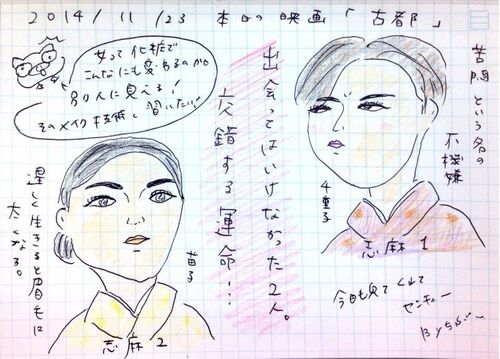 2014/11/23 本日の映画「古都」
女って化粧で
こんなにも変わるのかめ
別人に見える!
そのメイク技術、習いたい!
苦悶という名の
不機嫌
千重子
志麻1
出会ってはいけなかった2人。
交錯する運命…!
苗子
志麻2
逞しく生きると眉毛は
太くなる。
今日も見てくれて
センキュー